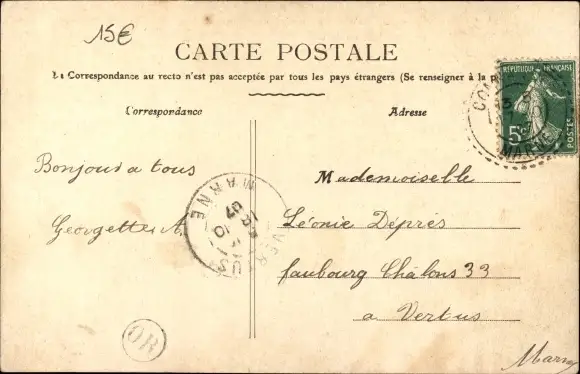 15€
CARTE POSTALE
La Correspondance au recto n'est pas acceptée par tous les pays étrangers (Se renseigner à la p
Correspondance
Adresse
RÉPUBLIQUE FRANÇAISE
5c
POSTES
MARNE
Bonjour a tous
Georgette
MARNE
Mademoiselle
Léonie Déprés
faubourg Châlons 33
a Vertus
Marne
OR